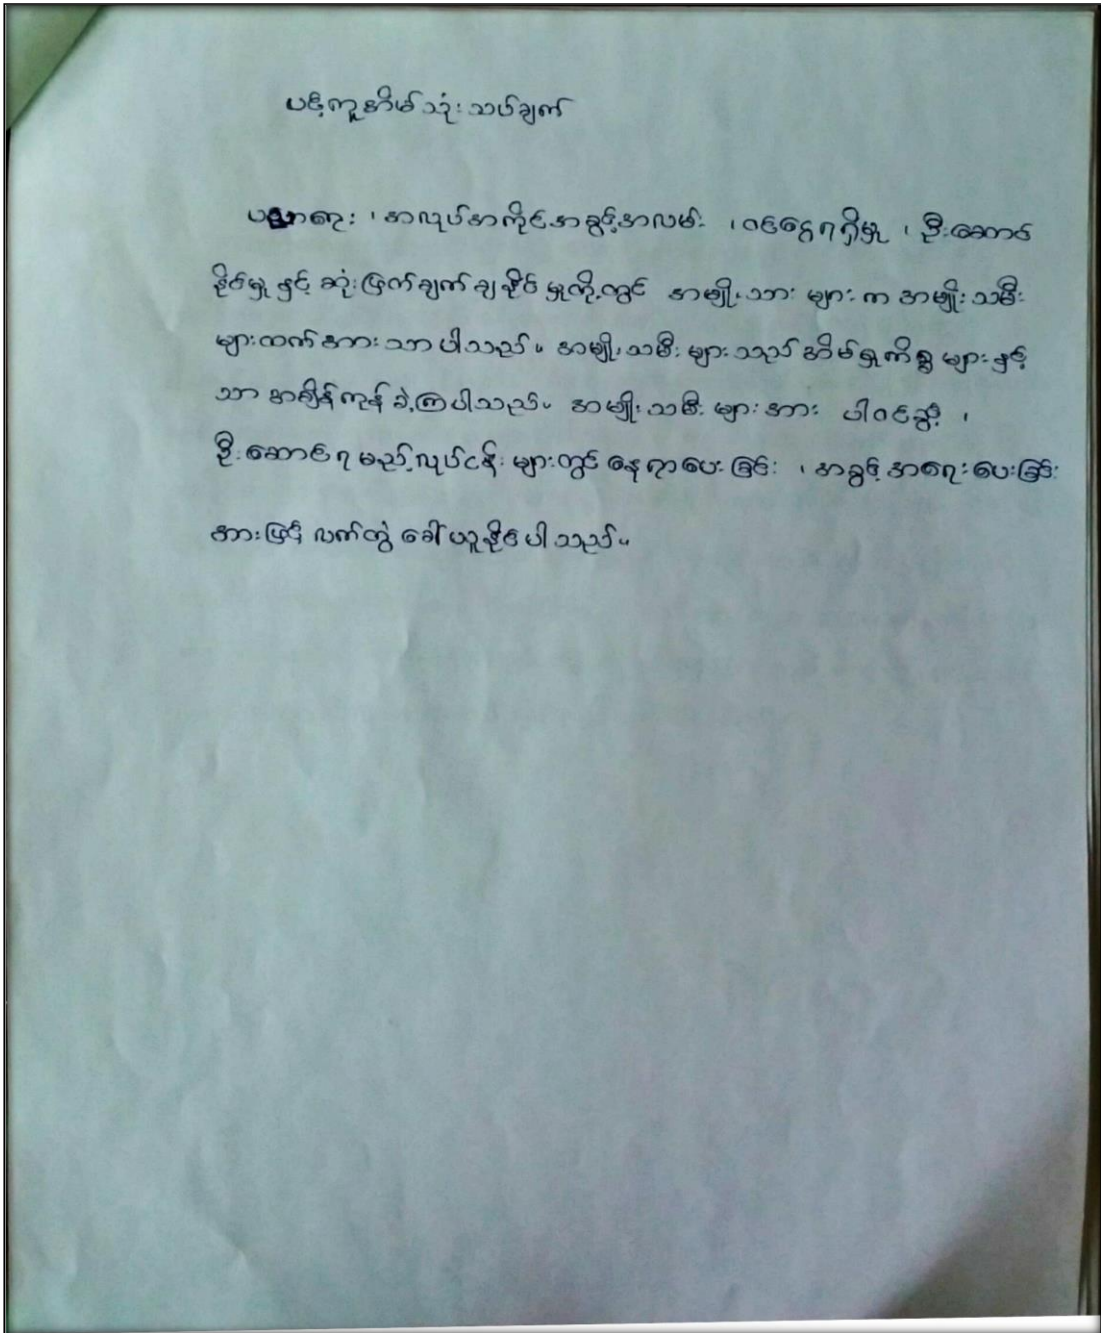 ပင့်ကူအိမ်သုံးသပ်ချက်
ပညာရေး ၊ အလုပ်အကိုင်အခွင့်အလမ်း ၊ ဝင်ငွေရရှိမှု ၊ ဦးဆောင်
နိုင်မှု နှင့် ဆုံးဖြတ်ချက်ချနိုင်မှုတို့တွင် အမျိုးသားများက အမျိုးသမီး
များထက်အားသာပါသည်။ အမျိုးသမီးများသည် အိမ်မှုကိစ္စများနှင့်
သာ အချိန်ကုန်ခဲ့ကြပါသည်။ အမျိုးသမီးများအား ပါဝင်ခွင့် ၊
ဦးဆောင်ရမည့်လုပ်ငန်းများတွင် နေရာပေးခြင်း ၊ အခွင့်အရေးပေးခြင်း
အားဖြင့် လက်တွဲခေါ်ယူနိုင်ပါသည်။